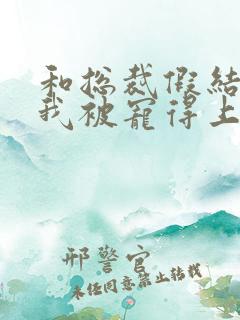 和总裁假结
我被宠得上
邢警官
未经同意禁止转载